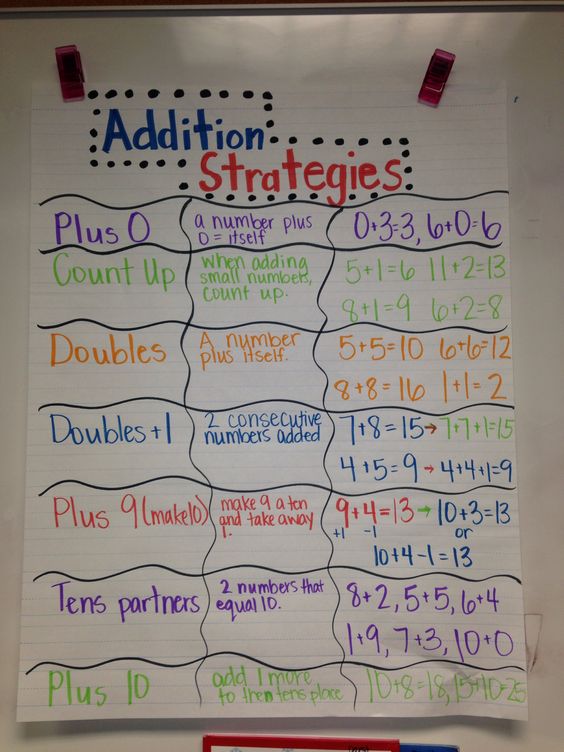 Addition
Strategies
Plus 0
a number plus
0 = itself
0+3=3, 6+0=6
Count Up
when adding
small numbers,
count up.
5+1=6 11+2=13
8+1=9 6+2=8
Doubles
A number
plus itself.
5+5=10 6+6=12
8+8=16 1+1=2
Doubles+1
2 consecutive
numbers added
7+8=15→7+7+1=15
4+5=9→4+4+1=9
Plus 9(make10)
make 9 a ten
and take away
1.
9+4=13→10+3=13
+1 -1 or
10+4-1=13
Tens partners
2 numbers that
equal 10.
8+2, 5+5, 6+4
1+9, 7+3, 10+0
Plus 10
add 1 more
to the tens place
10+8=18, 15+10=25